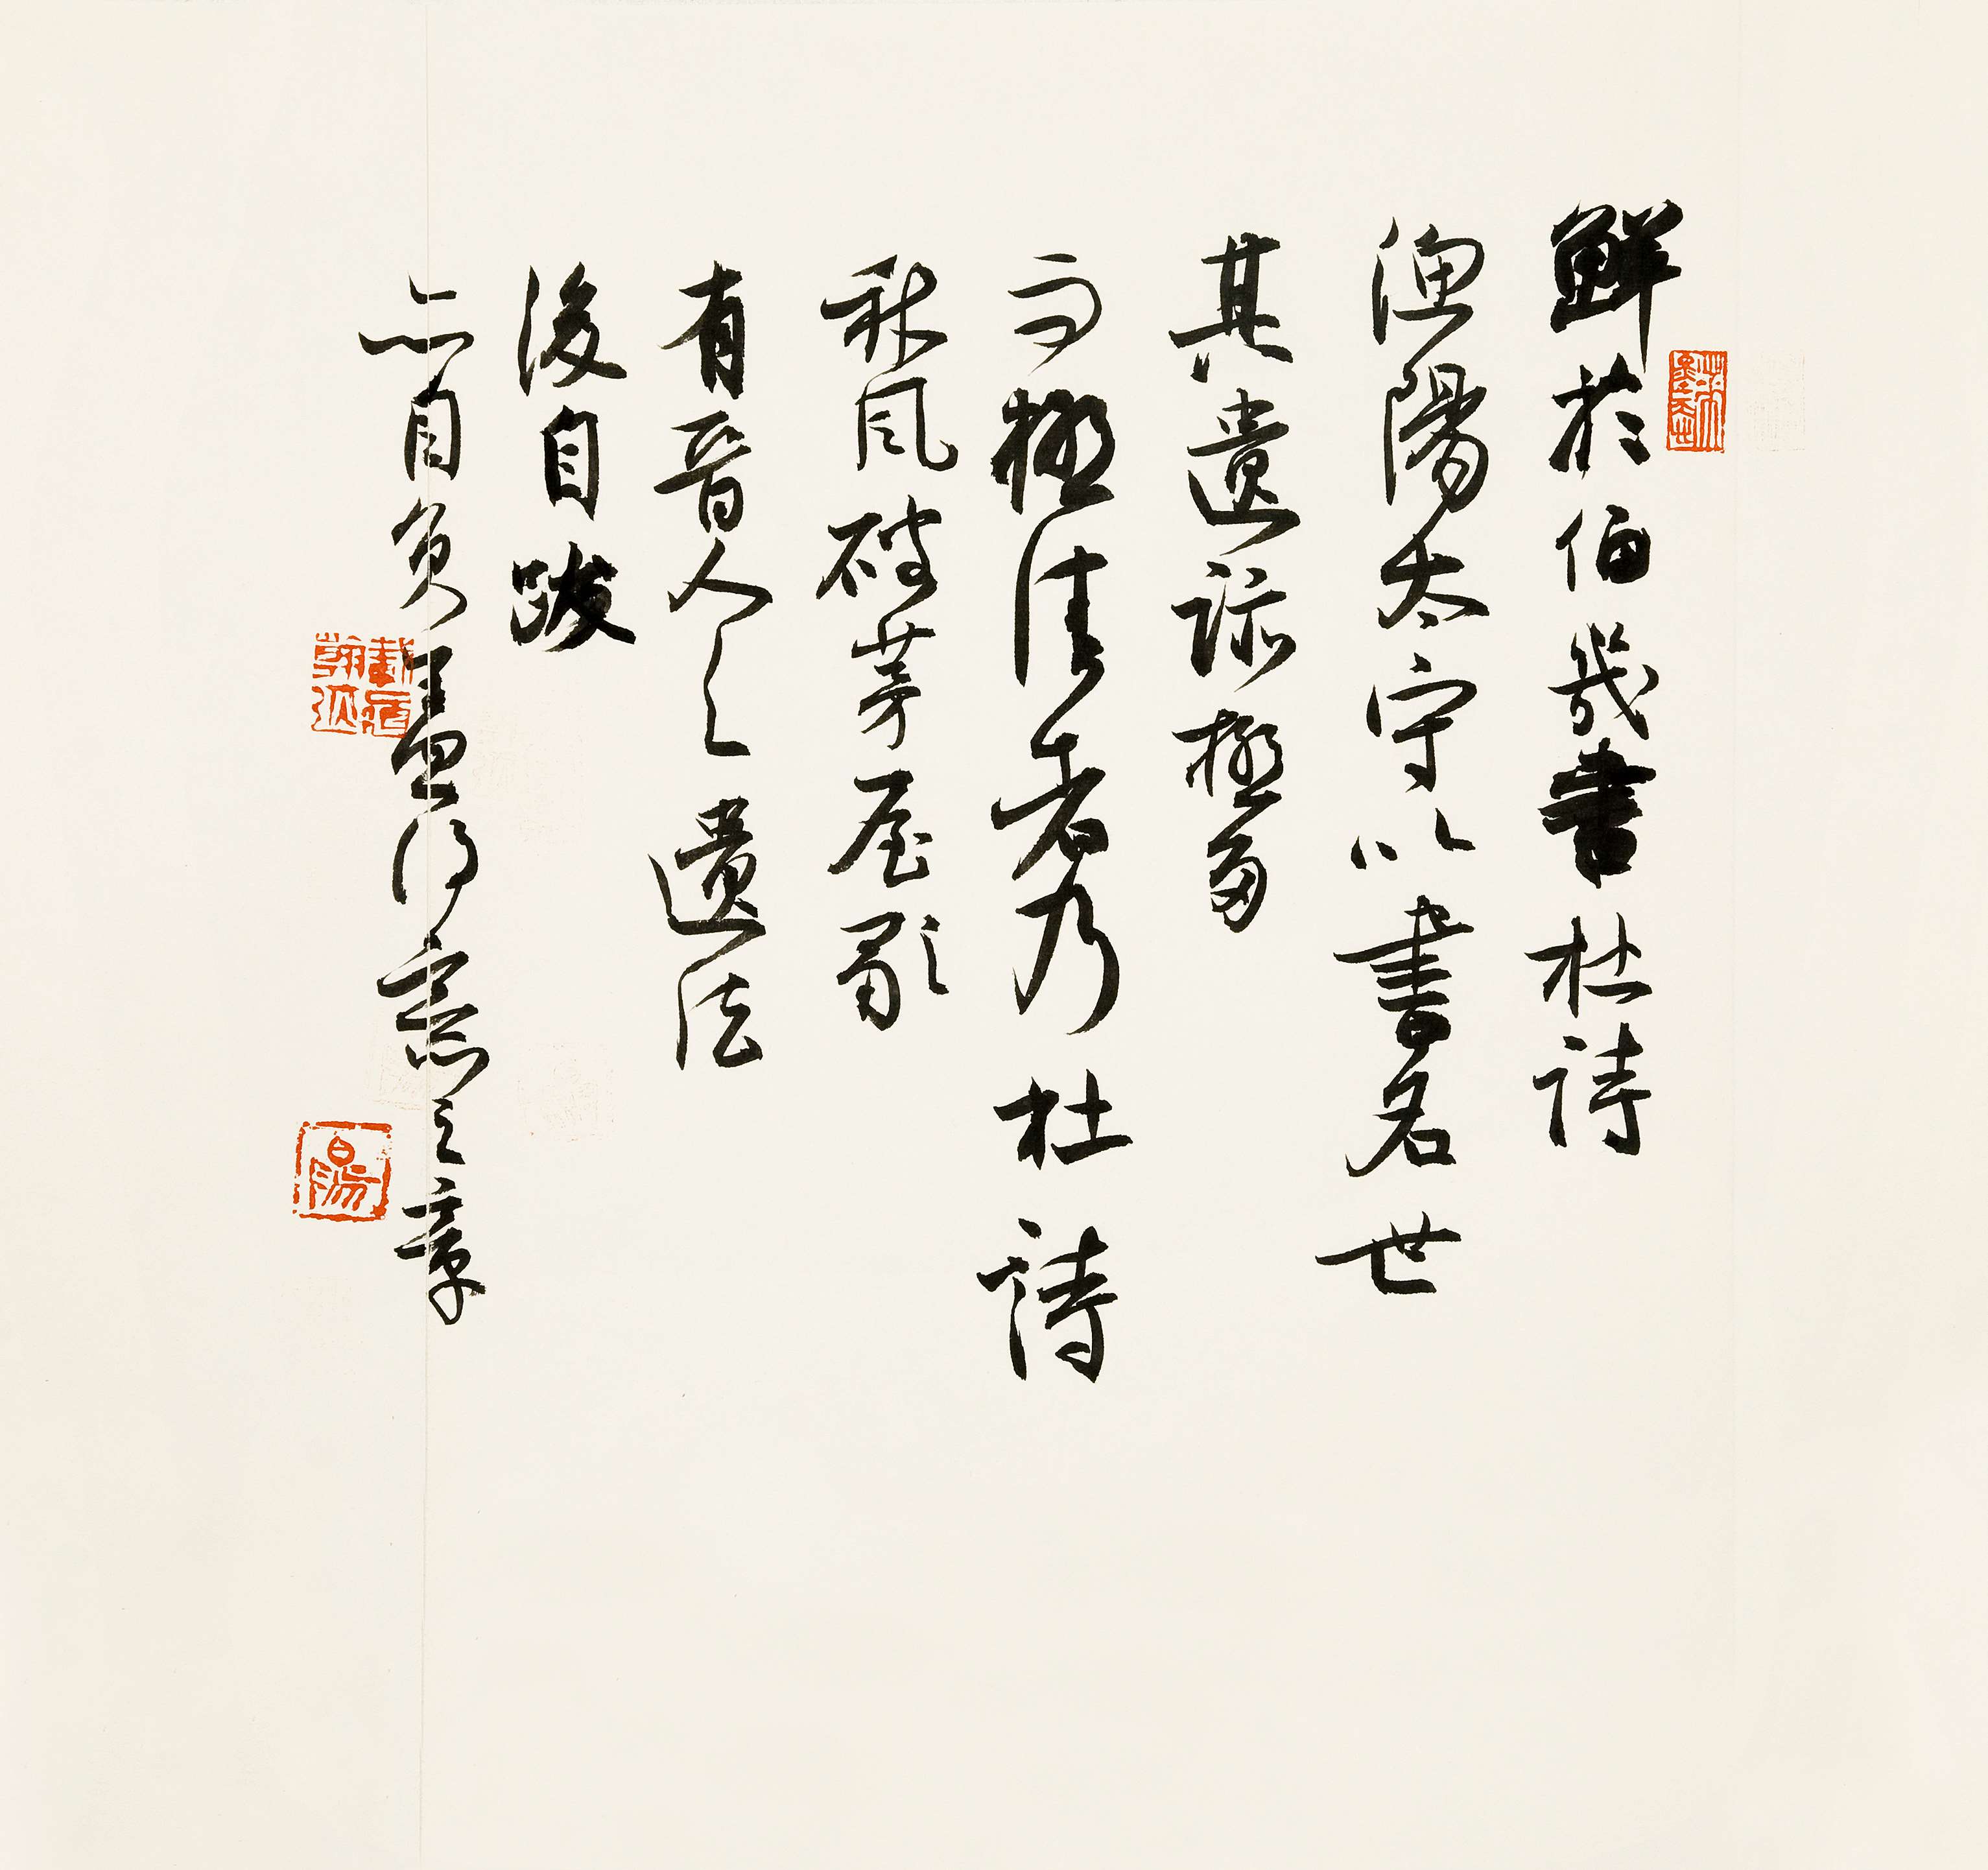 鮮於伯幾書杜詩
漁陽太守以書名世
其遺跡極多
而極佳者乃杜詩
秋風破茅屋歌
有晉人之遺法
後自跋
亦自負盡得意之章